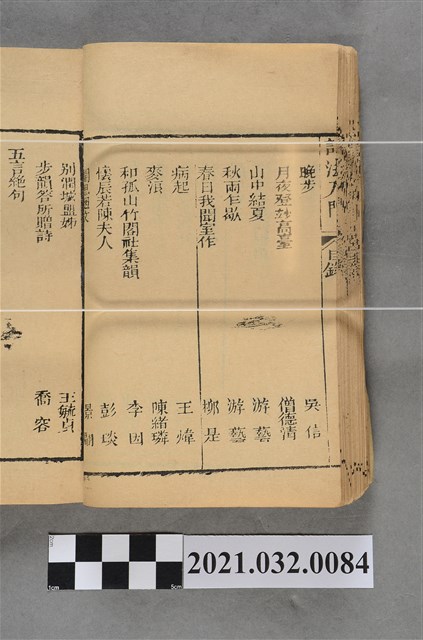 詩法入門
目錄
晚步 吳信
月夜登妙高臺 僧德清
山中結夏 游藝
秋雨乍歇 游藝
春日我聞室作 柳是
病起 王煒
麥浪 陳緒璘
和孤山竹閣社集韻 李因
侯辰若陳夫人 彭琰
別淍城盟姊 王毓貞
步韻答所贈詩 喬容
五言絕句
2cm
1cm
5cm
2021.032.0084